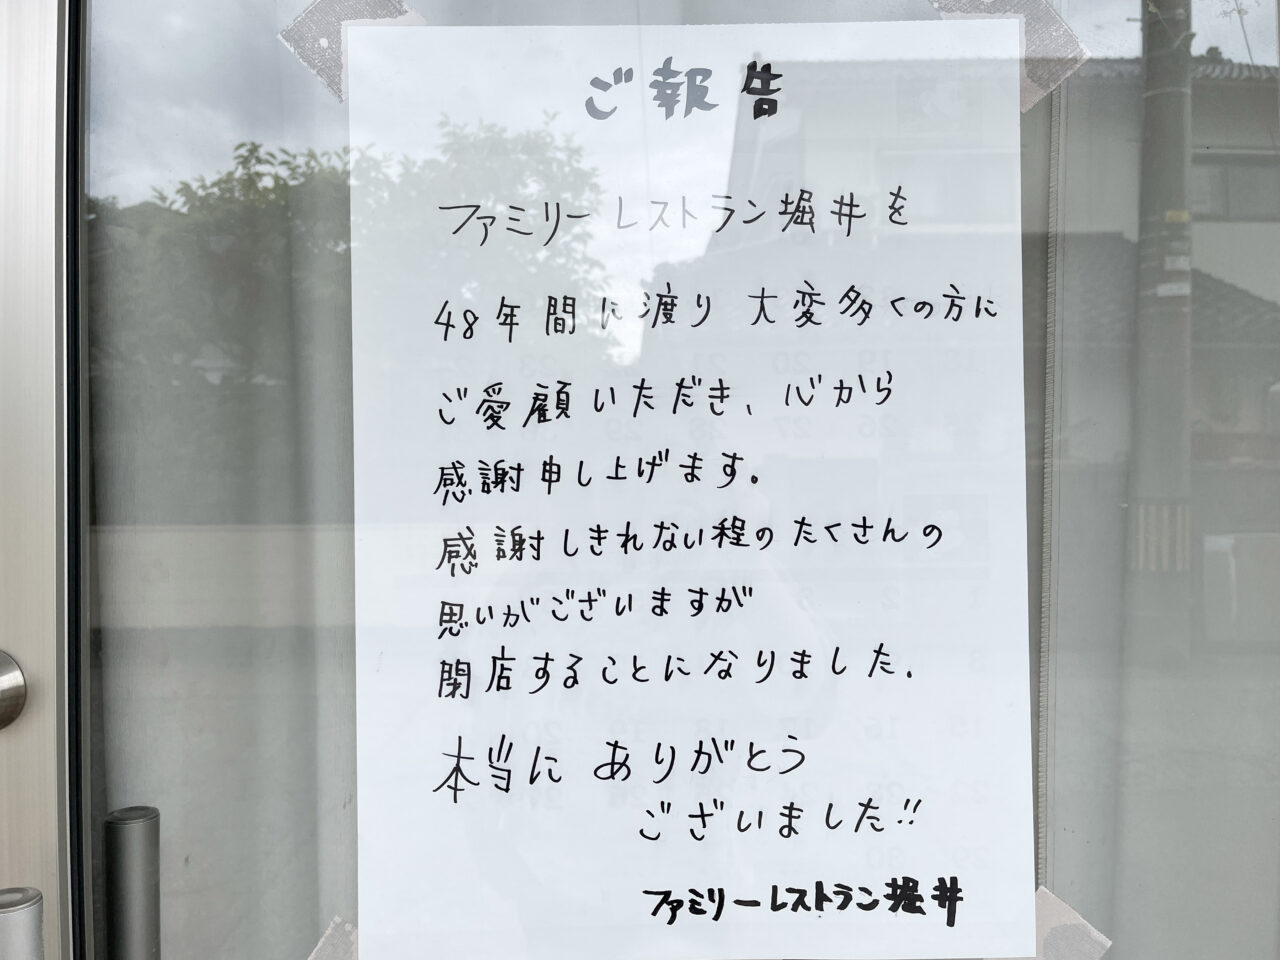 ご報告
ファミリーレストラン堀井を
48年間に渡り 大変多くの方に
ご愛顧いただき、心から
感謝申し上げます。
感謝しきれない程のたくさんの
思いがございますが
閉店することになりました.
本当に ありがとう
ございました!!
ファミリーレストラン堀井